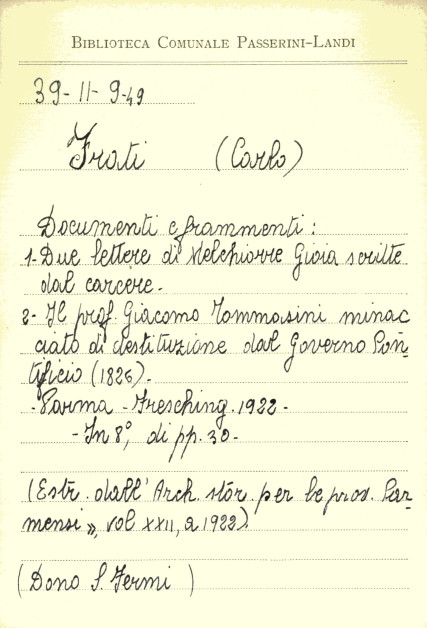 BIBLIOTECA COMUNALE PASSERINI-LANDI
39-11-9-49
Frati (Carlo)
Documenti e frammenti:
1-Due lettere di Melchiorre Gioia scritte
dal carcere-
2- Il prof. Giacomo Tommasini minac
ciato di destituzione dal Governo Pon-
tificio (1826).
-Parma-Fresching.1922-
-In 8°, di pp. 30-
(Estr. dall'Arch. stor. per le prov. Par-
mensi», vol XXII, a 1922).
(Dono S. Fermi)